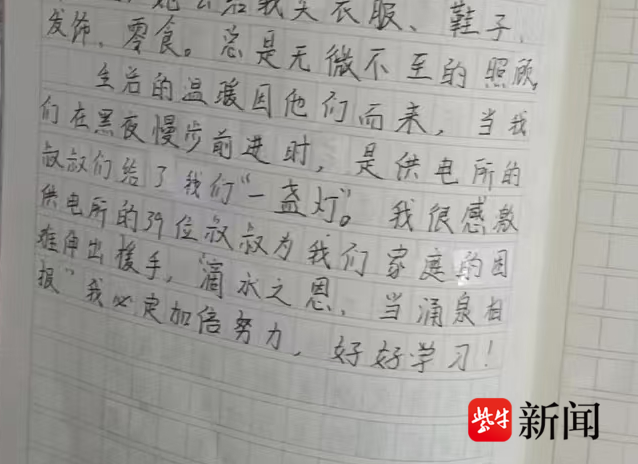 她会给我买衣服、鞋子、
发饰、零食。总是无微不至的照顾,
生活的温暖因他们而来，当我
们在黑夜慢步前进时，是供电所的
叔叔们给了我们“一盏灯”。我很感激
供电所的39位叔叔为我们家庭的困
难伸出援手，滴水之恩，当涌泉相
报”我必定加倍努力，好好学习！
紫牛新闻